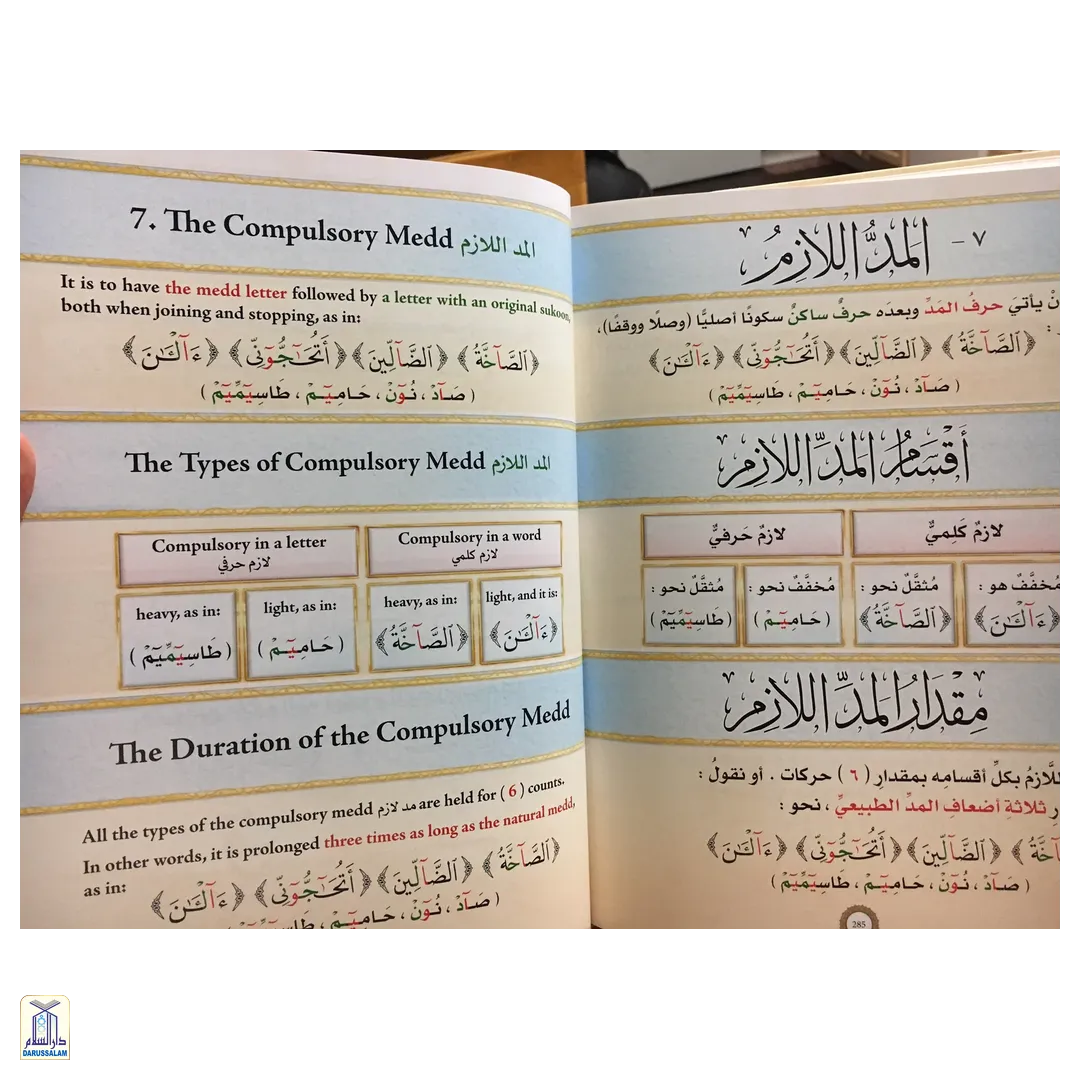 7. The Compulsory Medd المد اللازم
It is to have the medd letter followed by a letter with an original sukoon,
both when joining and stopping, as in:
﴿ٱلصَّآخَّةُ﴾ ﴿ٱلضَّآلِّينَ﴾ ﴿أَتُحَٰٓجُّوٓنِّي﴾ ﴿ءَآلْـَٰٔنَ﴾
( صَـآدْ ، نُـوٓنْ ، حَـامِيـٓمْ ، طَاسِيٓمِّيٓمْ )
The Types of Compulsory Medd المد اللازم
Compulsory in a letter
لازم حرفي
Compulsory in a word
لازم كلمي
heavy, as in:
( طَاسِيٓمِّيٓمْ )
light, as in:
( حَـامِيـٓمْ )
heavy, as in:
﴿ٱلصَّآخَّةُ﴾
light, and it is:
﴿ءَآلْـَٰٔنَ﴾
The Duration of the Compulsory Medd
All the types of the compulsory medd مد لازم are held for ( 6 ) counts.
In other words, it is prolonged three times as long as the natural medd,
as in:
﴿ٱلصَّآخَّةُ﴾ ﴿ٱلضَّآلِّينَ﴾ ﴿أَتُحَٰٓجُّوٓنِّي﴾ ﴿ءَآلْـَٰٔنَ﴾
( صَـآدْ ، نُـوٓنْ ، حَـامِيـٓمْ ، طَاسِيٓمِّيٓمْ
٧ - المَدُّ اللازِمُ
يأتيَ حرفُ المَدِّ وبعدَه حرفٌ ساكنٌ سكونًا أصليًّا (وصلًا ووقفًا)،
: ﴿ٱلصَّآخَّةُ﴾ ﴿ٱلضَّآلِّينَ﴾ ﴿أَتُحَٰٓجُّوٓنِّي﴾ ﴿ءَآلْـَٰٔنَ﴾
( صَـآدْ ، نُـوٓنْ ، حَـامِيـٓمْ ، طَاسِيٓمِّيٓمْ )
أَقْسَامُ المَدِّ اللازِمِ
لازمٌ كَلِمِيٌّ
لازمٌ حَرفيٌّ
مُخفَّفٌ هو :
﴿ءَآلْـَٰٔنَ﴾
مُثقَّلٌ نحو :
﴿ٱلصَّآخَّةُ﴾
مُخفَّفٌ نحو :
( حَـامِيـٓمْ )
مُثقَّلٌ نحو :
( طَاسِيٓمِّيٓمْ )
مِقْدَارُ المَدِّ اللازِمِ
اللَّازمُ بكلِّ أقسامِه بمقدارِ ( ٦ ) حركات . أو نقولُ :
ثلاثةِ أضعافِ المدِّ الطبيعيِّ ، نحو :
﴿ٱلضَّآلِّينَ﴾ ﴿أَتُحَٰٓجُّوٓنِّي﴾ ﴿ءَآلْـَٰٔنَ﴾
( صَـآدْ ، نُـوٓنْ ، حَـامِيـٓمْ ، طَاسِيٓمِّيٓمْ )
285
دار السلام
DARUSSALAM